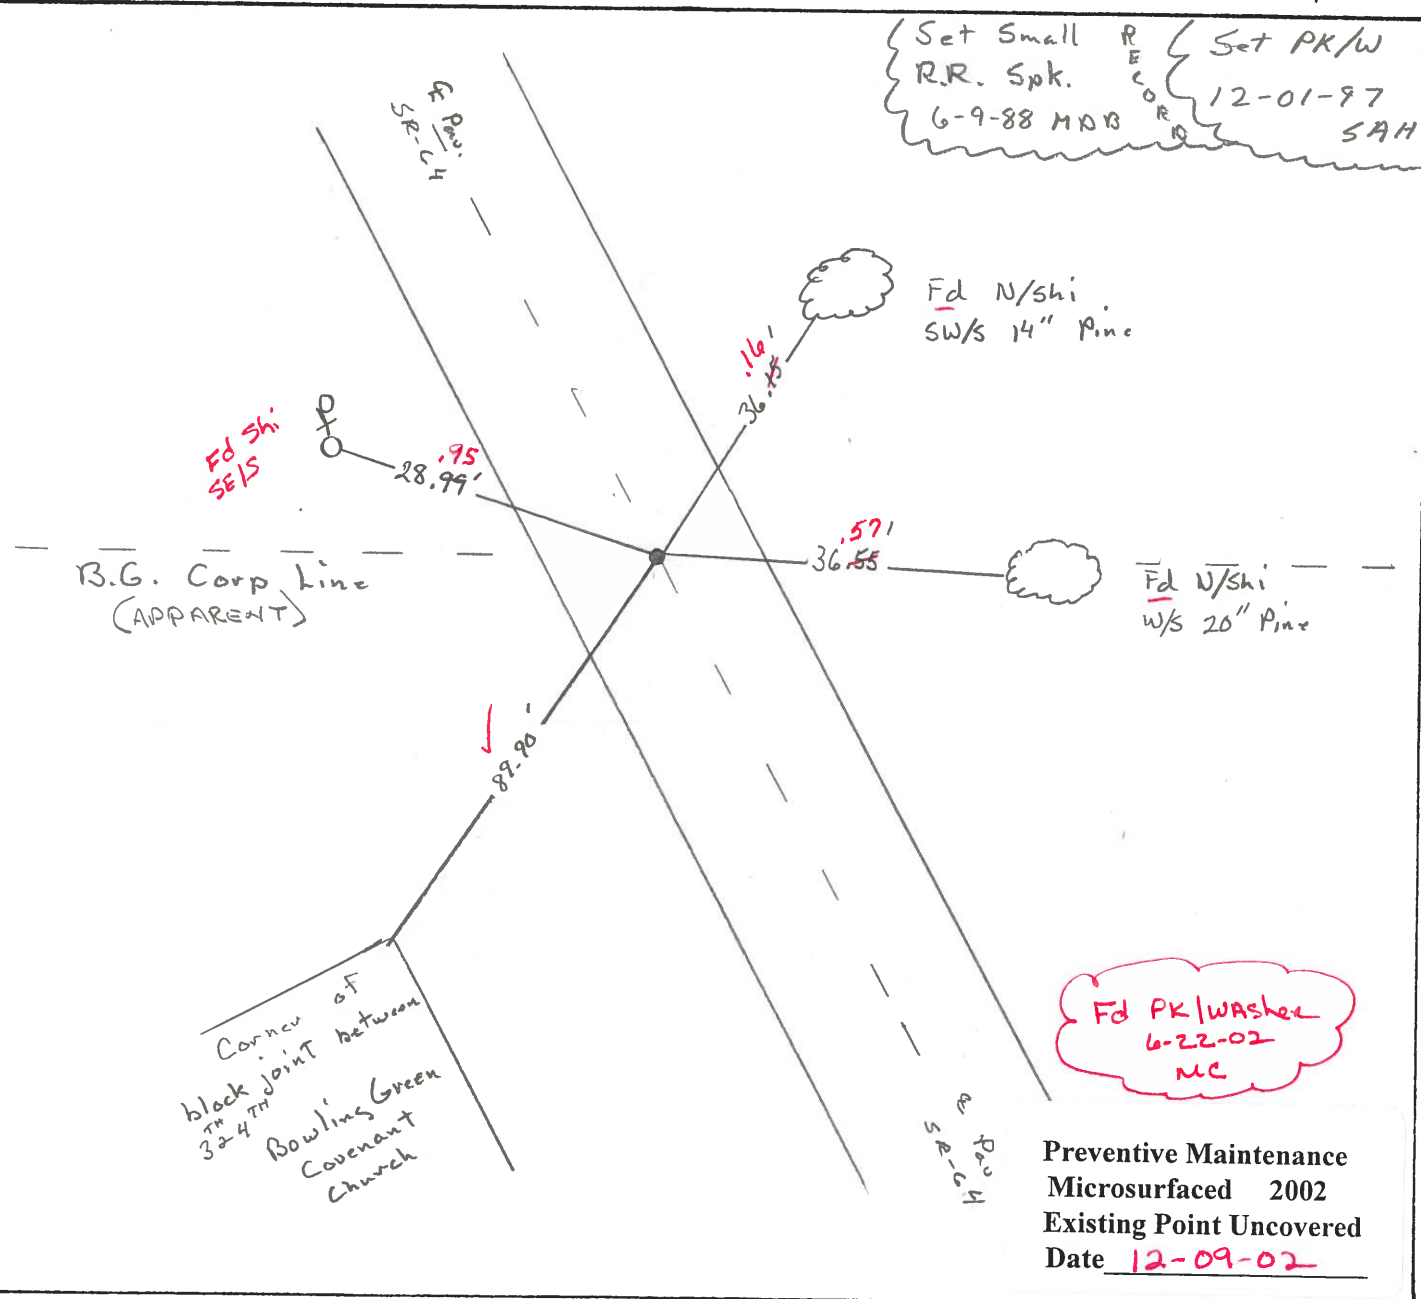 Set Small
R.R. Spk.
6-9-88 MDB
RECORD
Set PK/W
12-01-97
SAH
℄ Pav.
SR-64
Fd N/Shi
SW/S 14" Pine
.16'
36.15
Fd Shi
SE/S
.95
28.99'
.57'
36.55
B.G. Corp Line
(APPARENT)
Fd N/Shi
W/S 20" Pine
89.90'
Corner of
block joint between
3TH & 4TH
Bowling Green
Covenant
Church
Fd PK/WASher
6-22-02
MC
℄ Pav
SR-64
Preventive Maintenance
Microsurfaced 2002
Existing Point Uncovered
Date 12-09-02